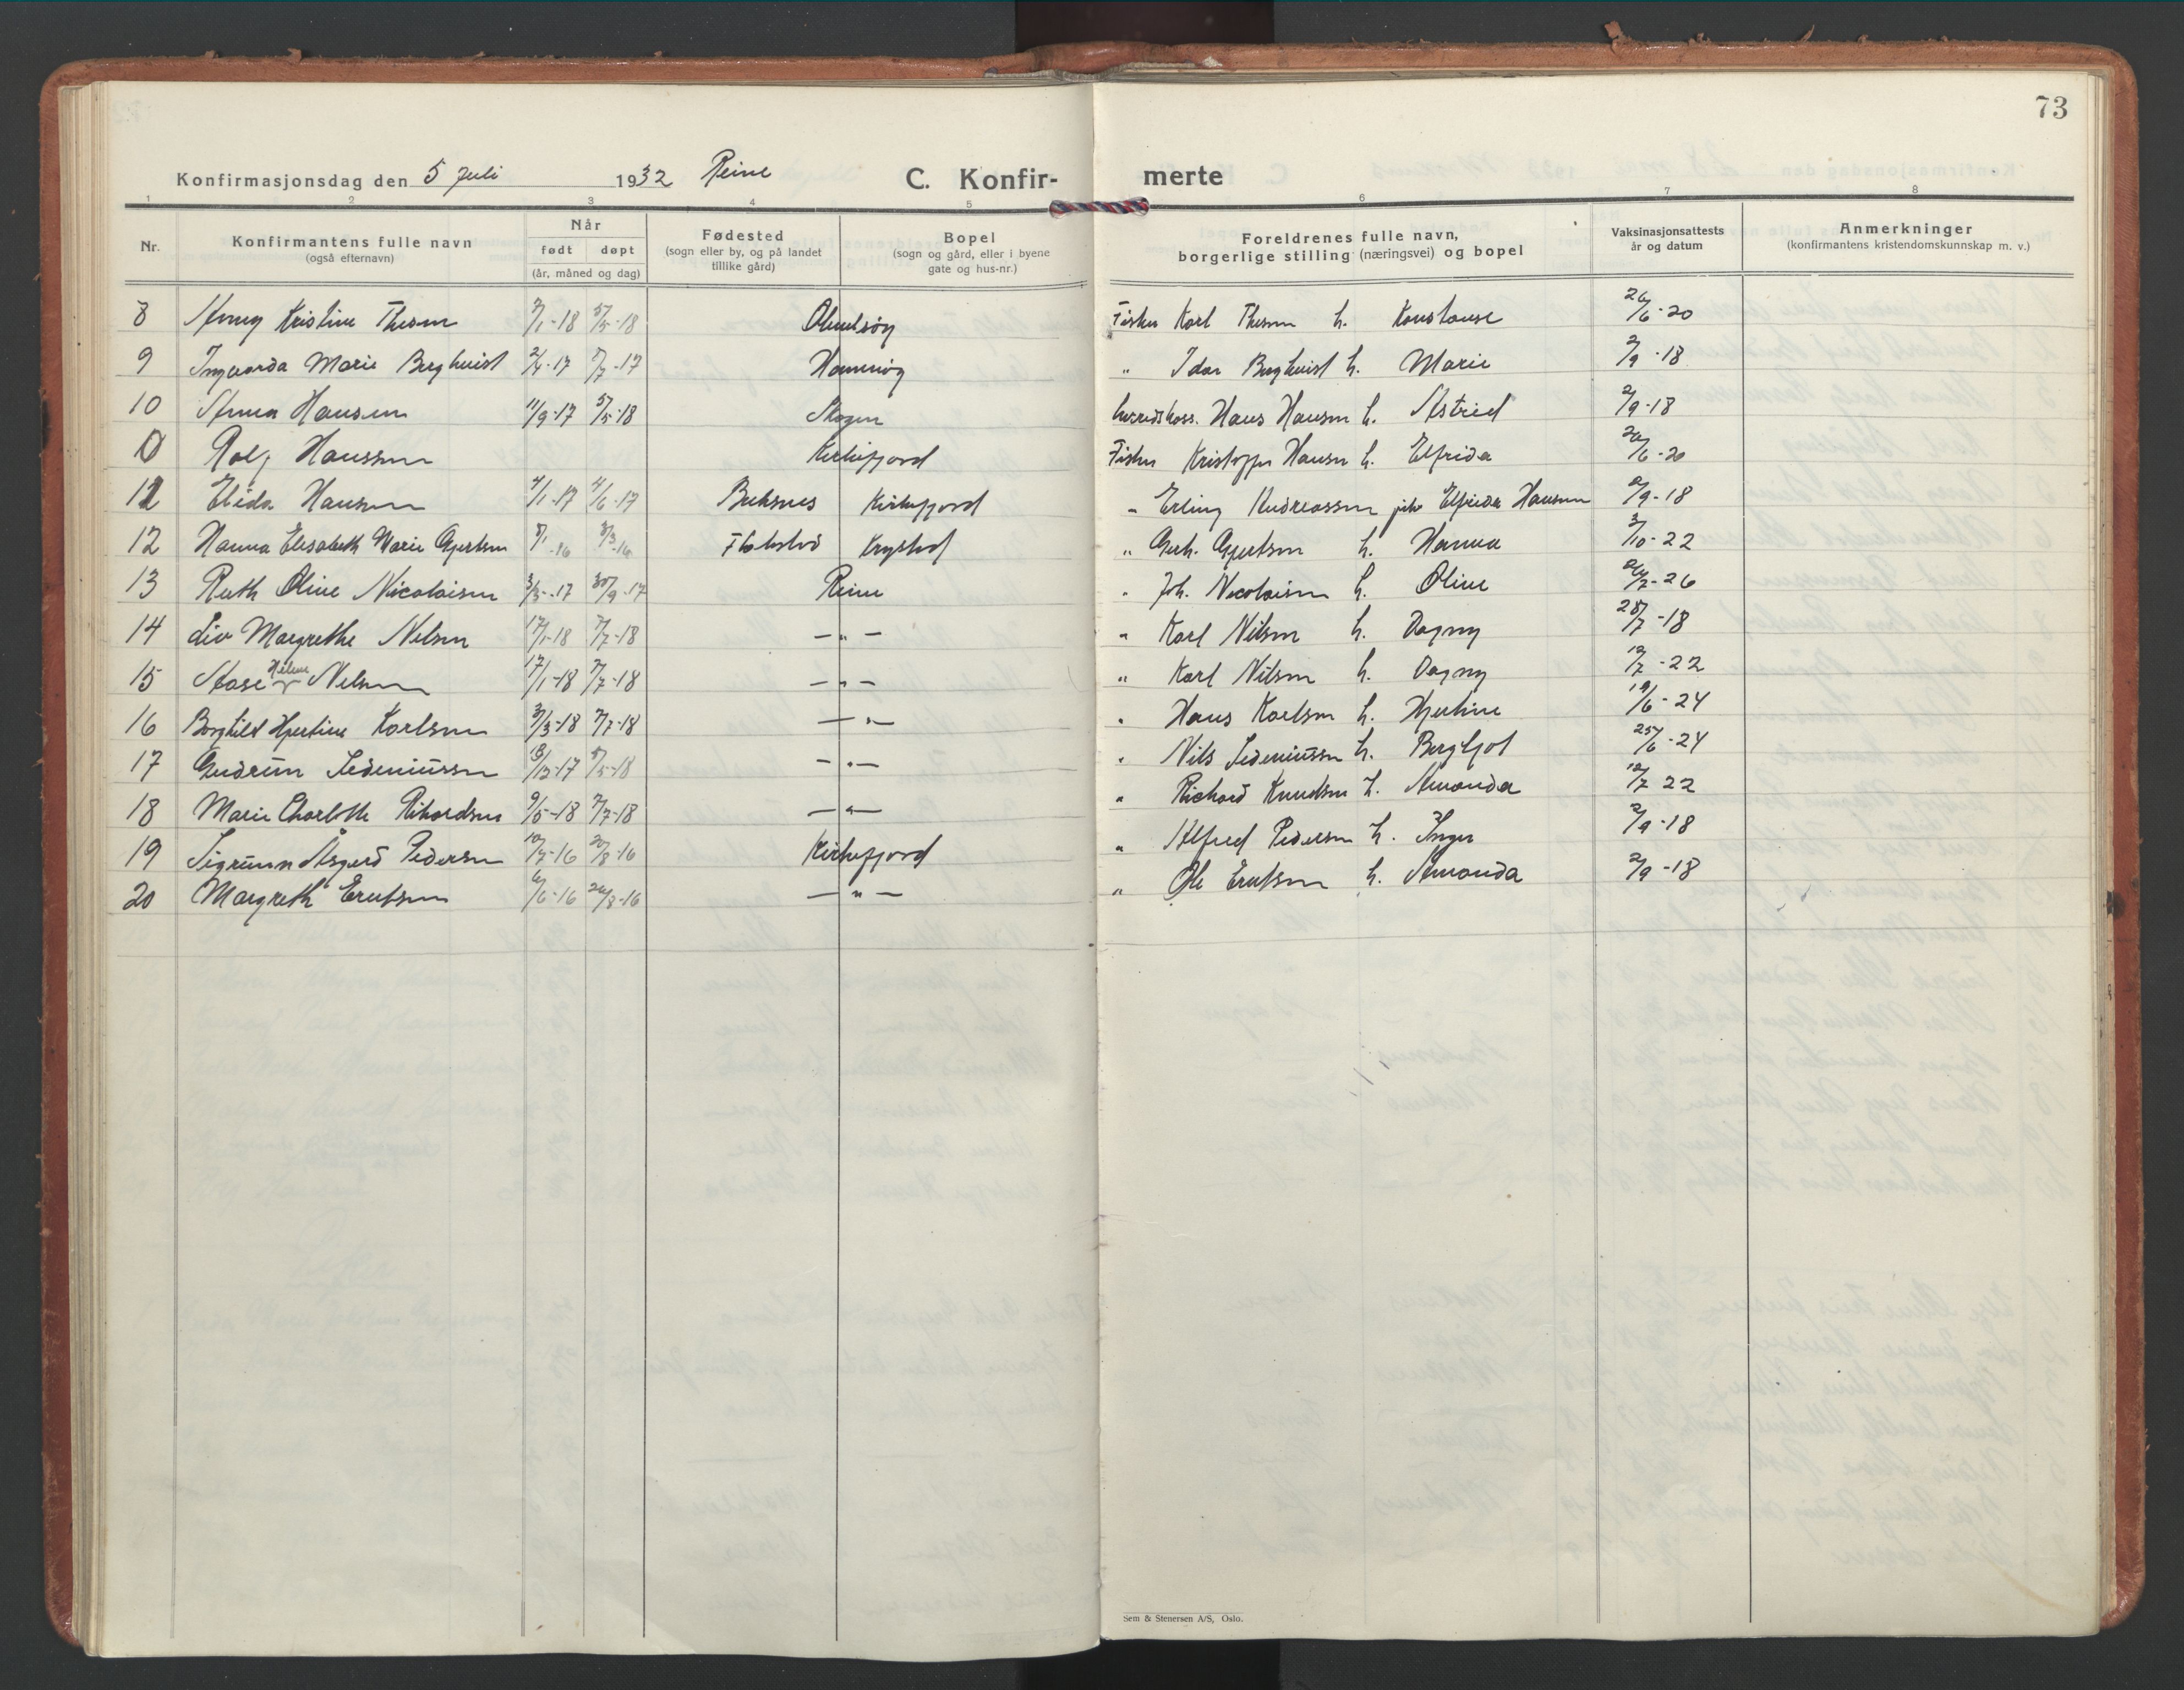 73
Konfirmasjonsdag den 5 Juli 1932 Reine C. Konfir- merte
1 2 3 4 5 6 7 8
Nr. Konfirmantens fulle navn (også efternavn) Når født døpt (år, måned og dag) Fødested (sogn eller by, og på landet tillike gård) Bopel (sogn og gård, eller i byene gate og hus-nr.) Foreldrenes fulle navn, borgerlige stilling (næringsvei) og bopel Vaksinasjonsattests år og datum Anmerkninger (konfirmantens kristendomskunnskap m. v.)
8 Kristine 7/1-18 5/5-18 Fisker Karl h. Konstanse 26/6-20
9 Marie Berghvist 2/4-17 7/7-17 Hamnøy " Idar Berghvist h. Marie 2/9-18
10 Anna Hansen 11/9-17 5/5-18 Hans Hansen h. Astrid 2/9-18
Rolf Hanssen Kirkefjord Fisker Kristoffer Hansen h. Elfrida 26/6-20
Elida Hansen 4/1-17 4/6-17 Buksnes Kirkefjord " Erling Andreassen Elfrida Hansen 2/9-18
12 Hanna Elisabeth Marie Gjertsen 8/1-16 3/3-16 Flakstad " Gerh. Gjertsen h. Hanna 3/10-22
13 Ruth Oline Nicolaisen 3/3-17 30/9-17 Reine " Joh. Nicolaisen h. Oline 24/7-26
14 Liv Margrethe Nilsen 17/1-18 7/7-18 — " — " Karl Nilsen h. Dagny 28/7-18
15 Aase Helene Nilsen 17/1-18 7/7-18 — " — " Karl Nilsen h. Dagny 12/7-22
16 Borghild Hjertine Karlsen 3/3-18 7/7-18 — " — " Hans Karlsen h. Hjertine 19/6-24
17 Gudrun Sedeniussen 18/12-17 5/5-18 — " — " Nils Sedeniussen h. Bergljot 25/6-24
18 Marie Charlotte Rikardsen 9/5-18 7/7-18 — " — " Richard Knudsen h. Amanda 12/7 22
19 Sigrunn Åsgerd Pedersen 10/7-16 20/8-16 Kirkefjord " Alfred Pedersen h. Inger 2/9-18
20 Margreth Erntsen 6/6-16 20/8-16 — " — " Ole Erntsen h. Amanda 2/9-18
Sem & Stenersen A/S, Oslo.